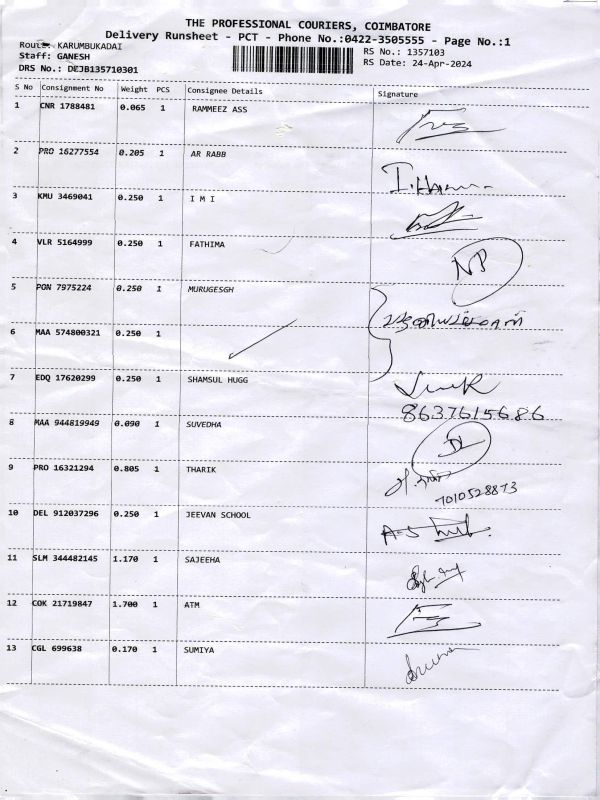 THE PROFESSIONAL COURIERS, COIMBATORE
Delivery Runsheet - PCT - Phone No.:0422-3505555 - Page No.:1
Route: KARUMBUKADAI
RS No.: 1357103
Staff: GANESH
RS Date: 24-Apr-2024
DRS No.: DEJB135710301
S No Consignment No Weight PCS Consignee Details Signature
1 CNR 1788481 0.065 1 RAMMEEZ ASS
2 PRO 16277554 0.205 1 AR RABB
3 KMU 3469041 0.250 1 I M I
4 VLR 5164999 0.250 1 FATHIMA
NP
5 PON 7975224 0.250 1 MURUGESGH
6 MAA 574800321 0.250 1
7 EDQ 17620299 0.250 1 SHAMSUL HUGG
8637615686
8 MAA 944819949 0.090 1 SUVEDHA
9 PRO 16321294 0.805 1 THARIK
7010528873
10 DEL 912037296 0.250 1 JEEVAN SCHOOL
11 SLM 344482145 1.170 1 SAJEEHA
12 COK 21719847 1.700 1 ATM
13 CGL 699638 0.170 1 SUMIYA